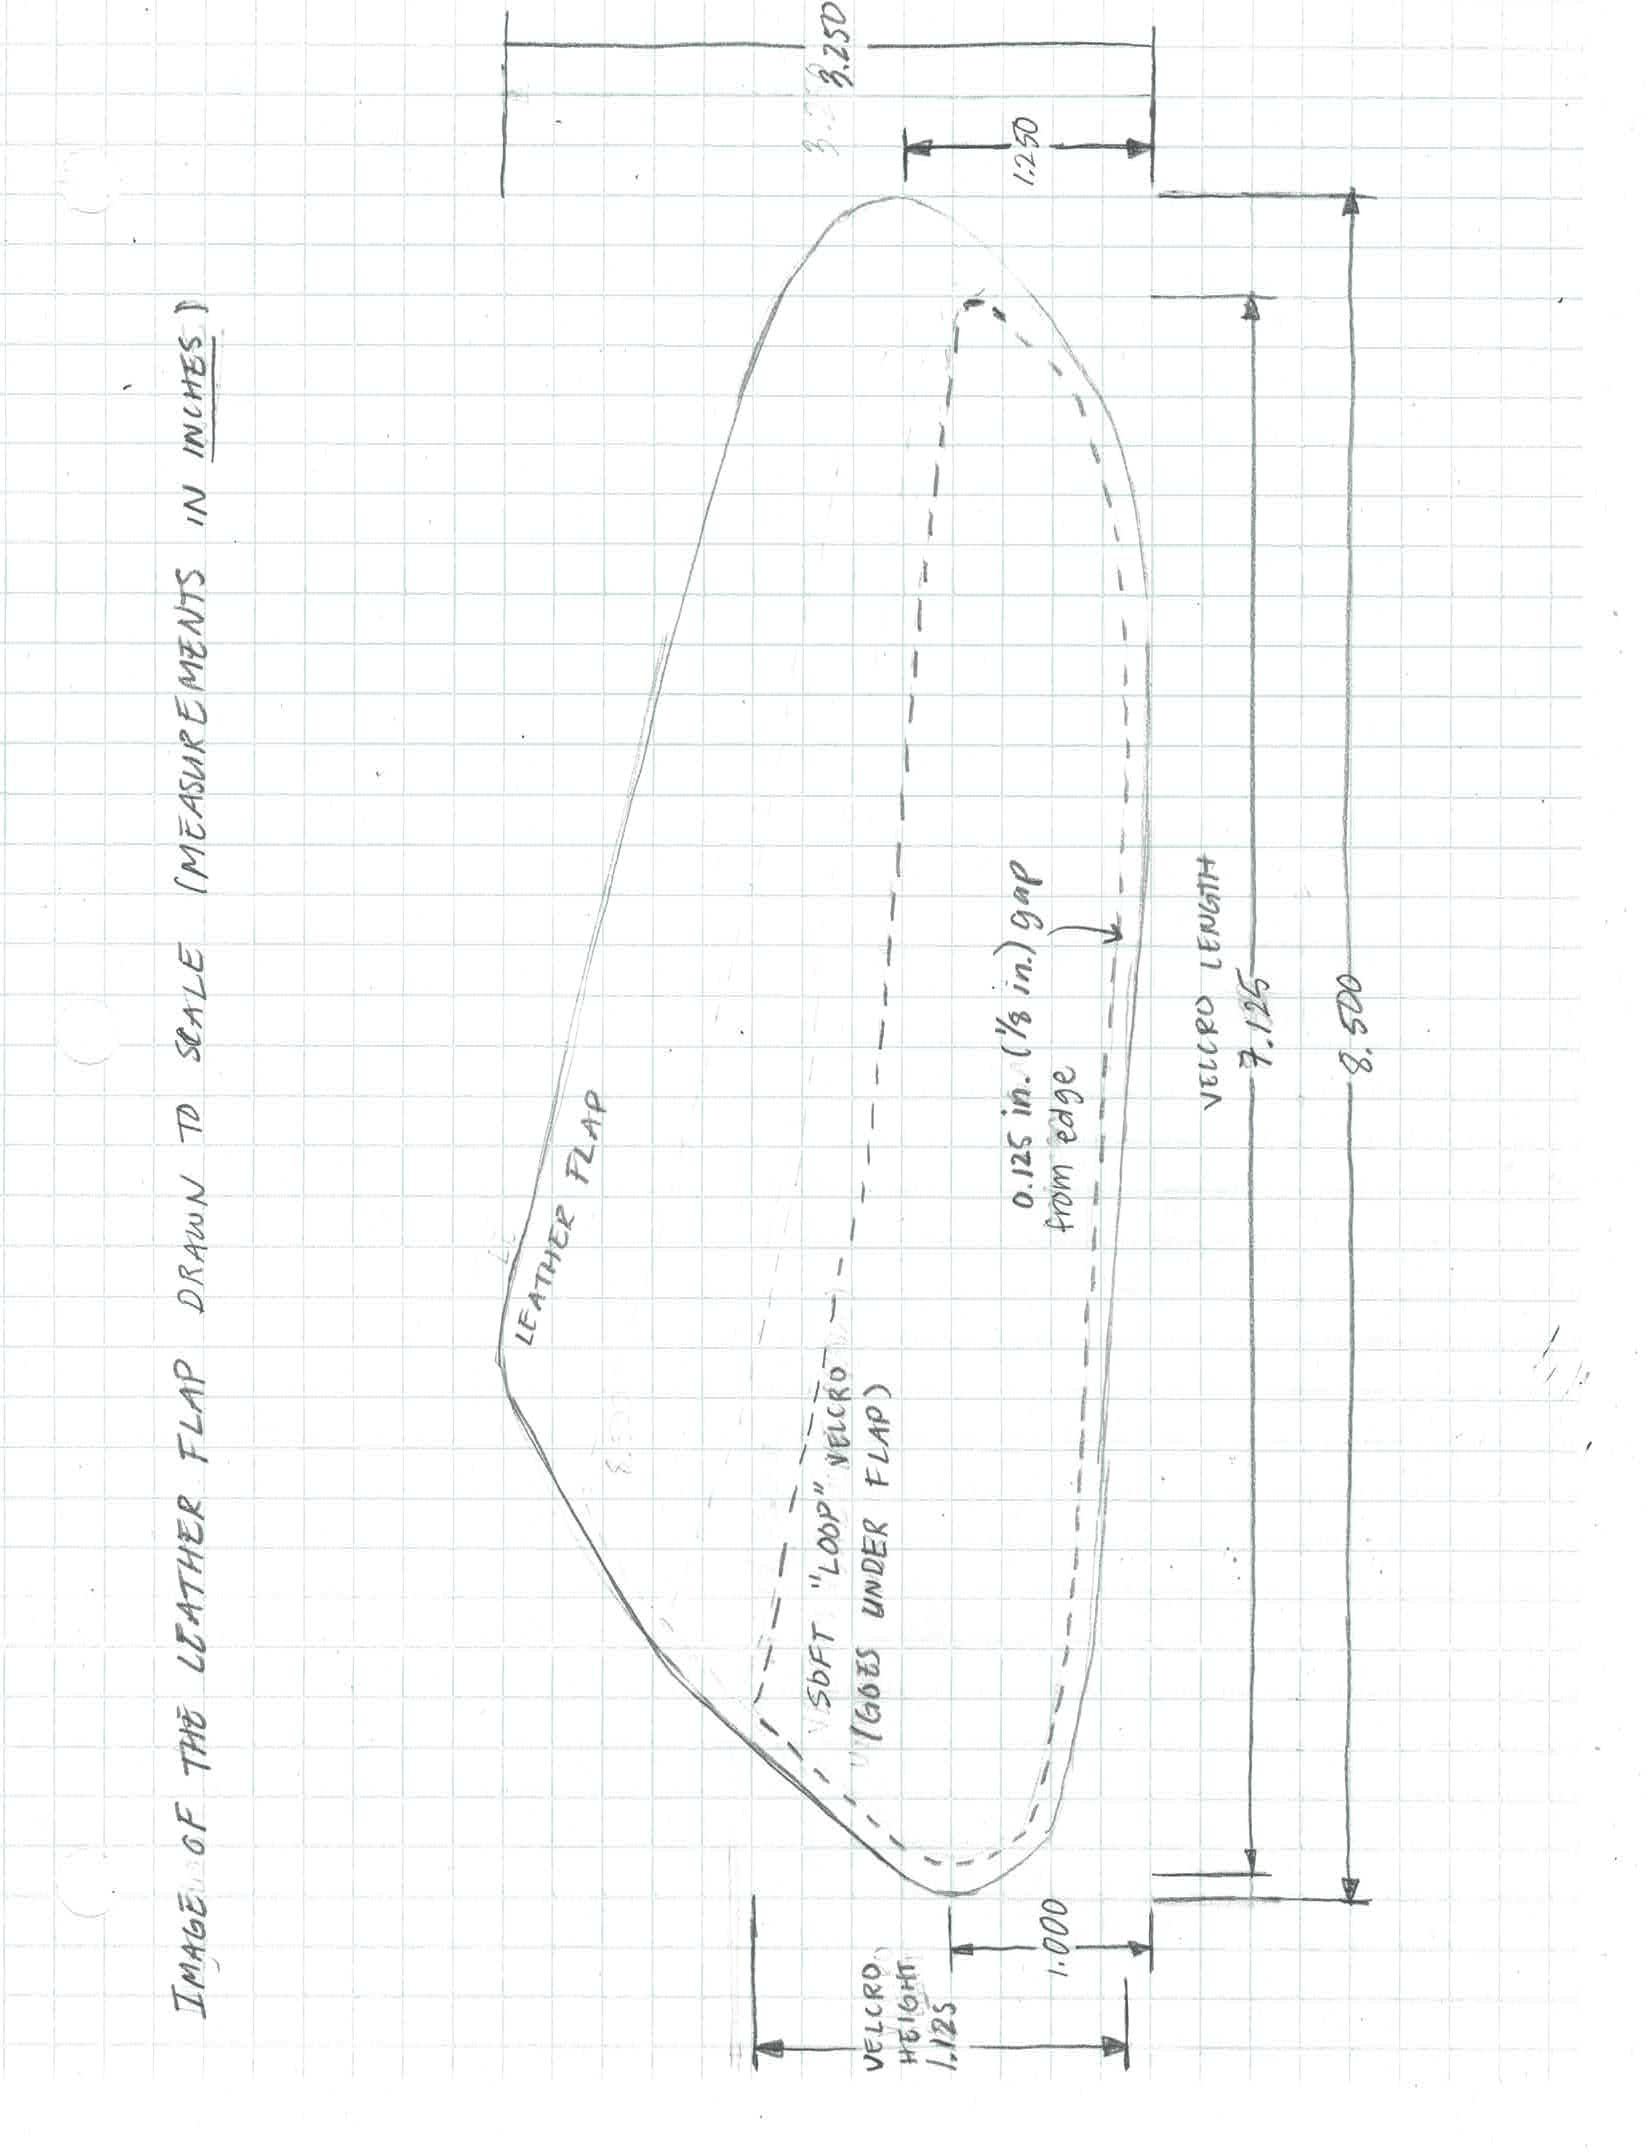 IMAGE OF THE LEATHER FLAP DRAWN TO SCALE (MEASUREMENTS IN INCHES)
3.250
1.250
LEATHER FLAP
SOFT "LOOP" VELCRO
(GOES UNDER FLAP)
0.125 in. (1/8 in.) gap
from edge
VELCRO LENGTH
7.125
8.500
1.000
VELCRO
HEIGHT
1.125